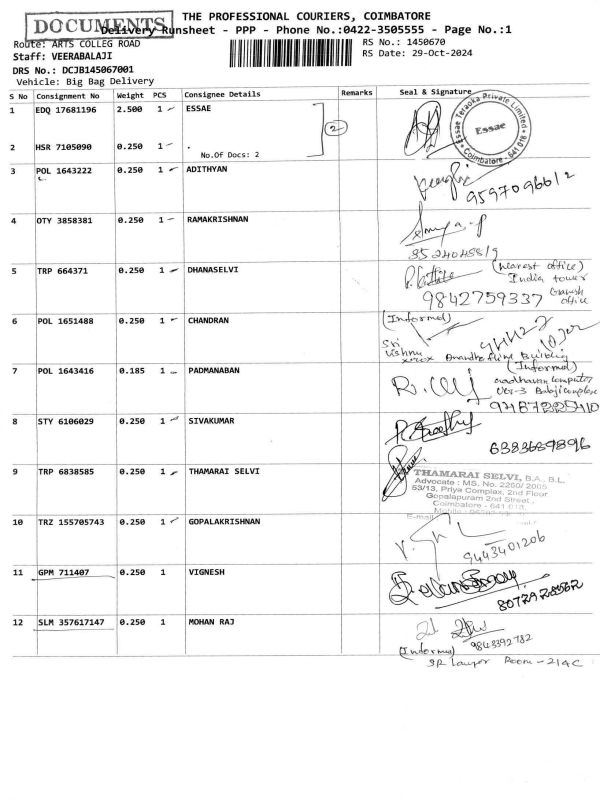 DOCUMENTS
THE PROFESSIONAL COURIERS, COIMBATORE
Delivery Runsheet - PPP - Phone No.:0422-3505555 - Page No.:1
Route: ARTS COLLEG ROAD
RS No.: 1450670
Staff: VEERABALAJI
RS Date: 29-Oct-2024
DRS No.: DCJB145067001
Vehicle: Big Bag Delivery
S No Consignment No Weight PCS Consignee Details Remarks Seal & Signature
1 EDQ 17681196 2.500 1 ESSAE
2
Essae Teraoka Private Limited
Essae
Coimbatore - 641 018
2 HSR 7105090 0.250 1 .
No.Of Docs: 2
3 POL 1643222 0.250 1 ADITHYAN
9597096612
4 OTY 3858381 0.250 1 RAMAKRISHNAN
5 TRP 664371 0.250 1 DHANASELVI
(Nearest office)
India tower
Ganesh office
9842759337
6 POL 1651488 0.250 1 CHANDRAN
(Informed)
Sri
Vishnu
xerox Building
7 POL 1643416 0.185 1 PADMANABAN
(Informed)
complex
8 STY 6106029 0.250 1 SIVAKUMAR
6383689896
9 TRP 6838585 0.250 1 THAMARAI SELVI
THAMARAI SELVI, B.A., B.L.
Advocate : MS. No. 2250/ 2005
53/13, Priya Complax, 2nd Floor
Gopalapuram 2nd Street,
Coimbatore - 641 018.
E-mail
10 TRZ 155705743 0.250 1 GOPALAKRISHNAN
9443401206
11 GPM 711407 0.250 1 VIGNESH
12 SLM 357617147 0.250 1 MOHAN RAJ
(Informed) 9843392782
Room - 214C